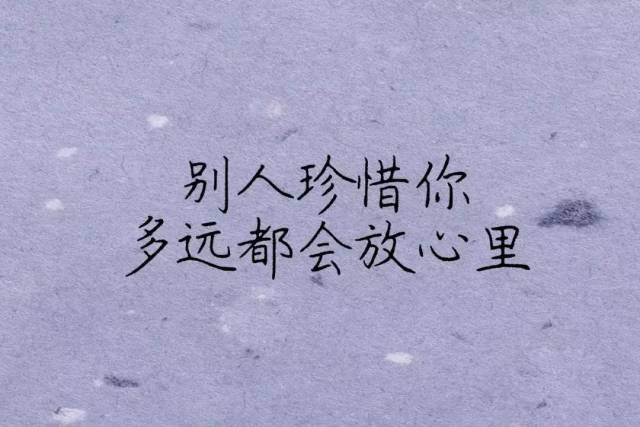 别人珍惜你
多远都会放心里